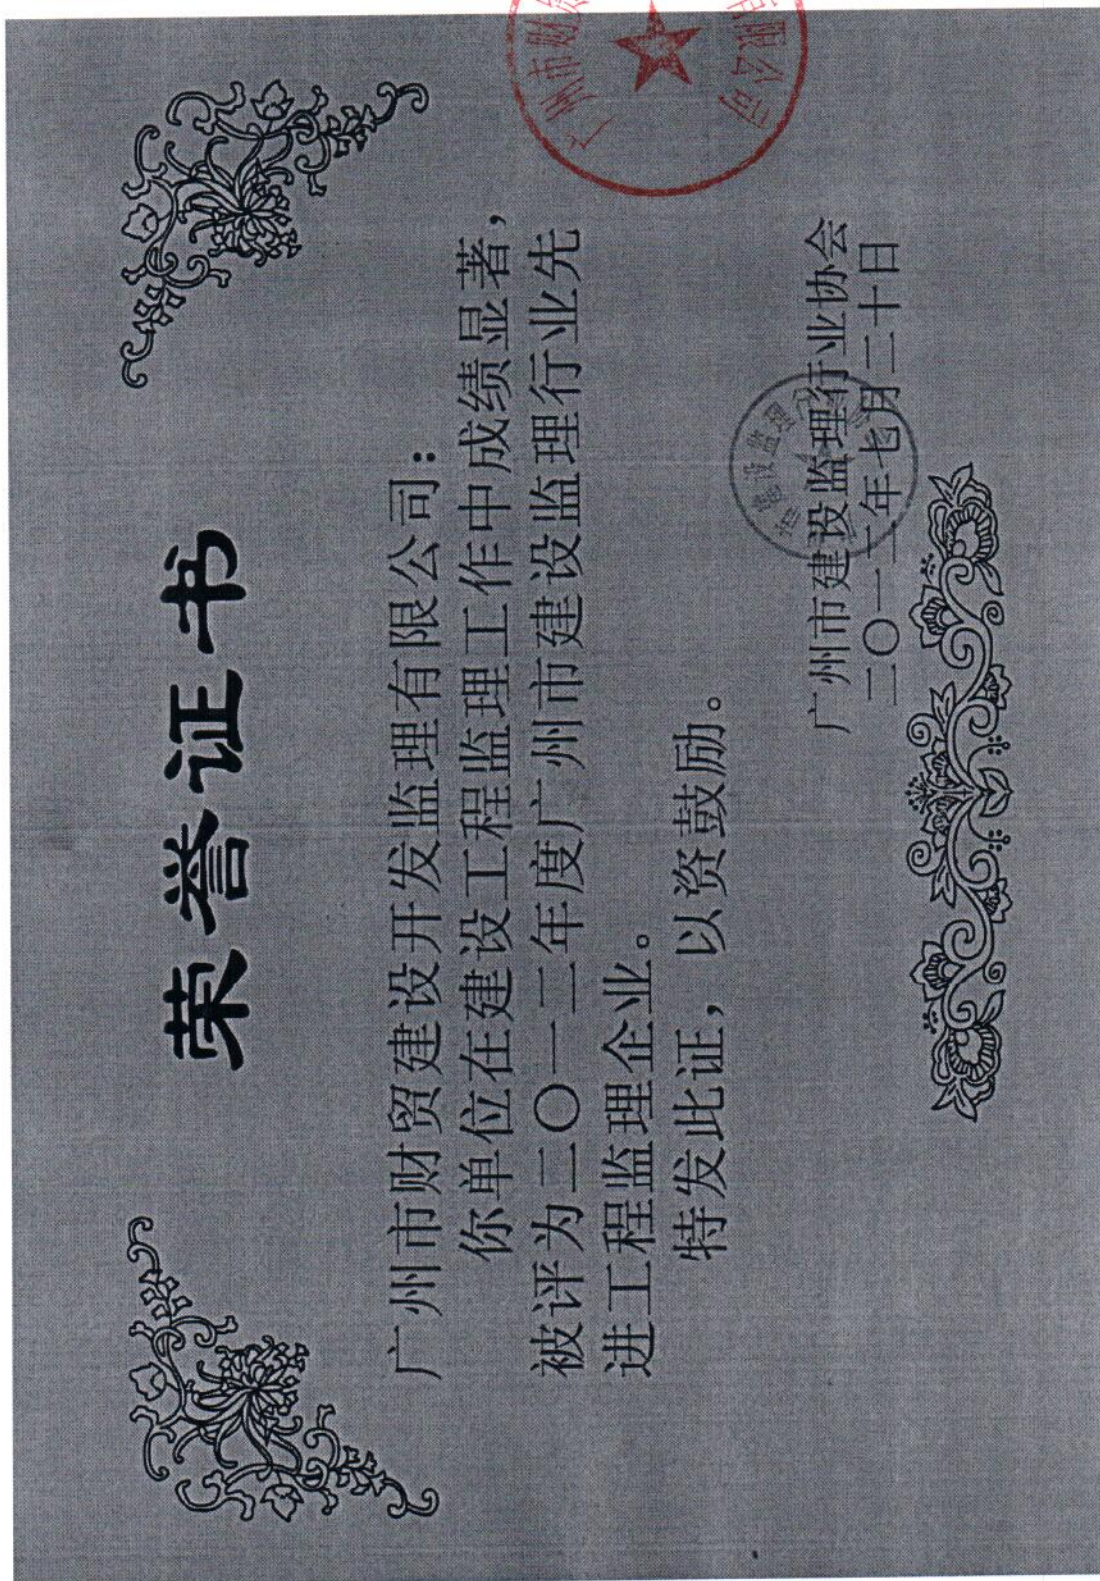 荣誉证书
广州市财贸建设开发监理有限公司：
你单位在建设工程监理工作中成绩显著，
被评为二〇一二年度广州市建设监理行业先
进工程监理企业。
特发此证，以资鼓励。
广州市建设监理行业协会
二〇一三年七月二十日
广州市财
限公司
市建设监理行